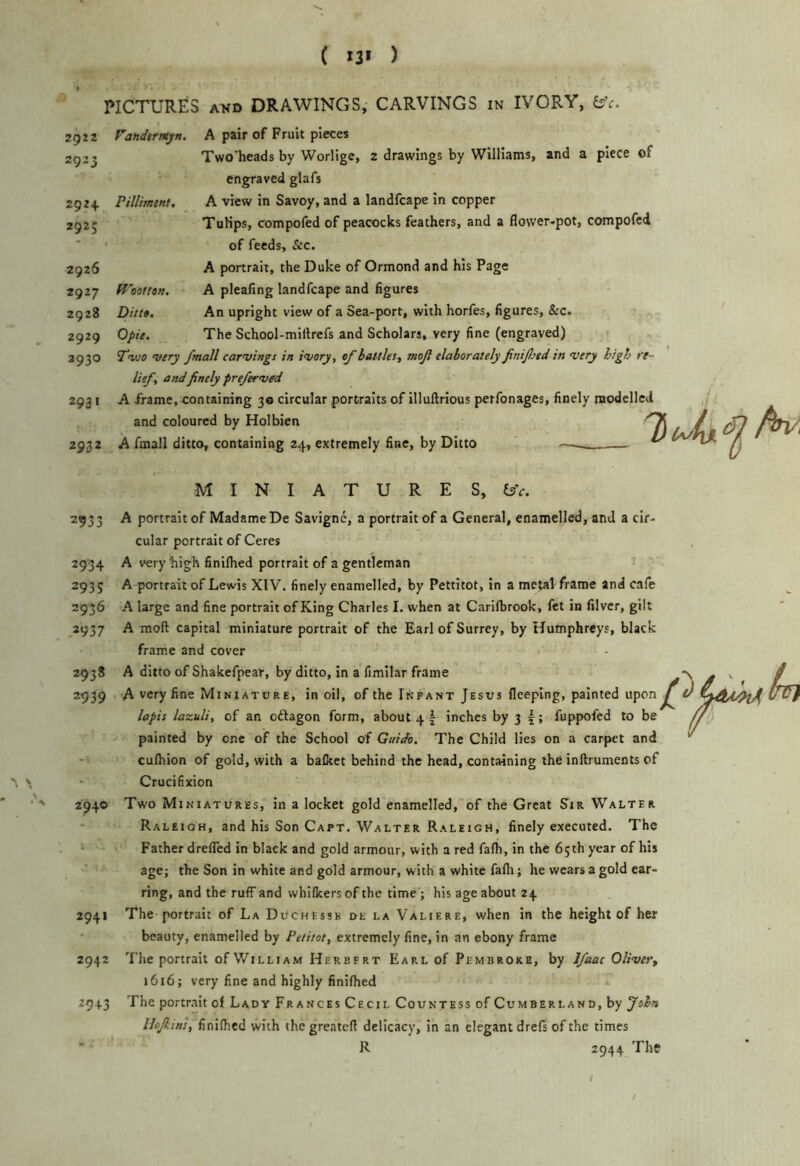 ( 131 )
PICTURES AND DRAWINGS, CARVINGS IN IVORY, &c.
2922 Vandermyn. A pair of Fruit pieces
2923 Two heads by Worlige, 2 drawings by Williams, and a piece of
engraved glaſs
2924 Pilliment. A view in Savoy, and a landſcape in copper
2925 Tulips, compoſed of peacocks feathers, and a flower-pot, compoſed
of ſeeds, &c.
2926 A portrait, the Duke of Ormond and his Page
2927 Wootton. A pleaſing landſcape and figures
2928 Ditto. An upright view of a Sea-port, with horſes, figures, &c.
2929 Opie. The School-miſtreſs and Scholars, very fine (engraved)
2930 Two very ſmall carvings in ivory, of battles, moſt elaborately finiſhed in very high re-
lief, and finely preſerved
2931 A frame, containing 30 circular portraits of illuſtrious perſonages, finely modelled
and coloured by Holbien
2932 A ſmall ditto, containing 24, extremely fine, by Ditto
Duke of
MINIATURES, &c.
2933 A portrait of Madame De Savigné, a portrait of a General, enamelled, and a cir-
cular portrait of Ceres
2934 A very high finiſhed portrait of a gentleman
2935 A portrait of Lewis XIV. finely enamelled, by Pettitot, in a metal frame and caſe
2936 A large and fine portrait of King Charles I. when at Cariſbrook, ſet in ſilver, gilt
2937 A moſt capital miniature portrait of the Earl of Surrey, by Humphreys, black
frame and cover
2938 A ditto of Shakeſpear, by ditto, in a ſimilar frame
2939 A very fine MINIATURE, in oil, of the INFANT JESUS ſleeping, painted upon
lapis lazuli, of an octagon form, about 4 ½ inches by 3 ½; ſuppoſed to be
painted by one of the School of Guido. The Child lies on a carpet and
cuſhion of gold, with a baſket behind the head, containing the inſtruments of
Crucifixion
2940 TWO MINIATURES, in a locket gold enamelled, of the Great SIR WALTER
RALEIGH, and his Son CAPT. WALTER RALEIGH, finely executed. The
Father dreſſed in black and gold armour, with a red ſaſh, in the 65th year of his
age; the Son in white and gold armour, with a white ſaſh; he wears a gold ear-
ring, and the ruff and whiſkers of the time; his age about 24
2941 The portrait of LA DUCHESSE DE LA VALIERE, when in the height of her
beauty, enamelled by Petitot, extremely fine, in an ebony frame
2942 The portrait of WILLIAM HERBERT EARL of PEMBROKE, by Iſaac Oliver,
1616; very fine and highly finiſhed
2943 The portrait of LADY FRANCES CECIL COUNTESS of CUMBERLAND, by John
Hoſkins, finiſhed with the greateſt delicacy, in an elegant dreſs of the times
R 2944 The